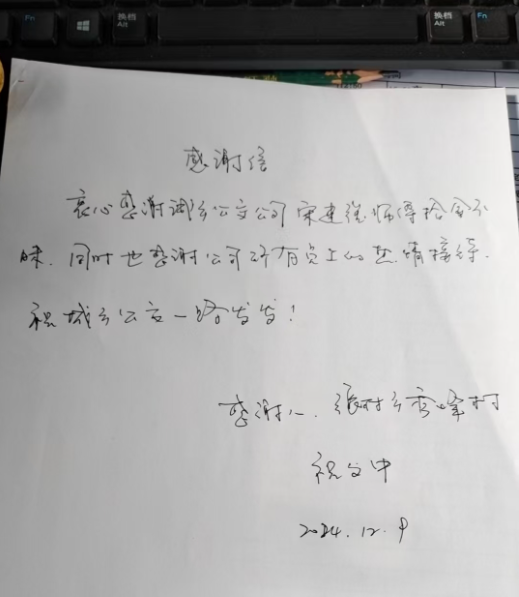 Fn
换档
Alt
换档
Alt
Fn
感谢信
衷心感谢城乡公交公司宋建强师傅拾金不
昧.同时也感谢公司所有员工的热情接待.
祝城乡公交一路发发！
感谢人.张村乡秀峰村
祝文中
2024.12.9